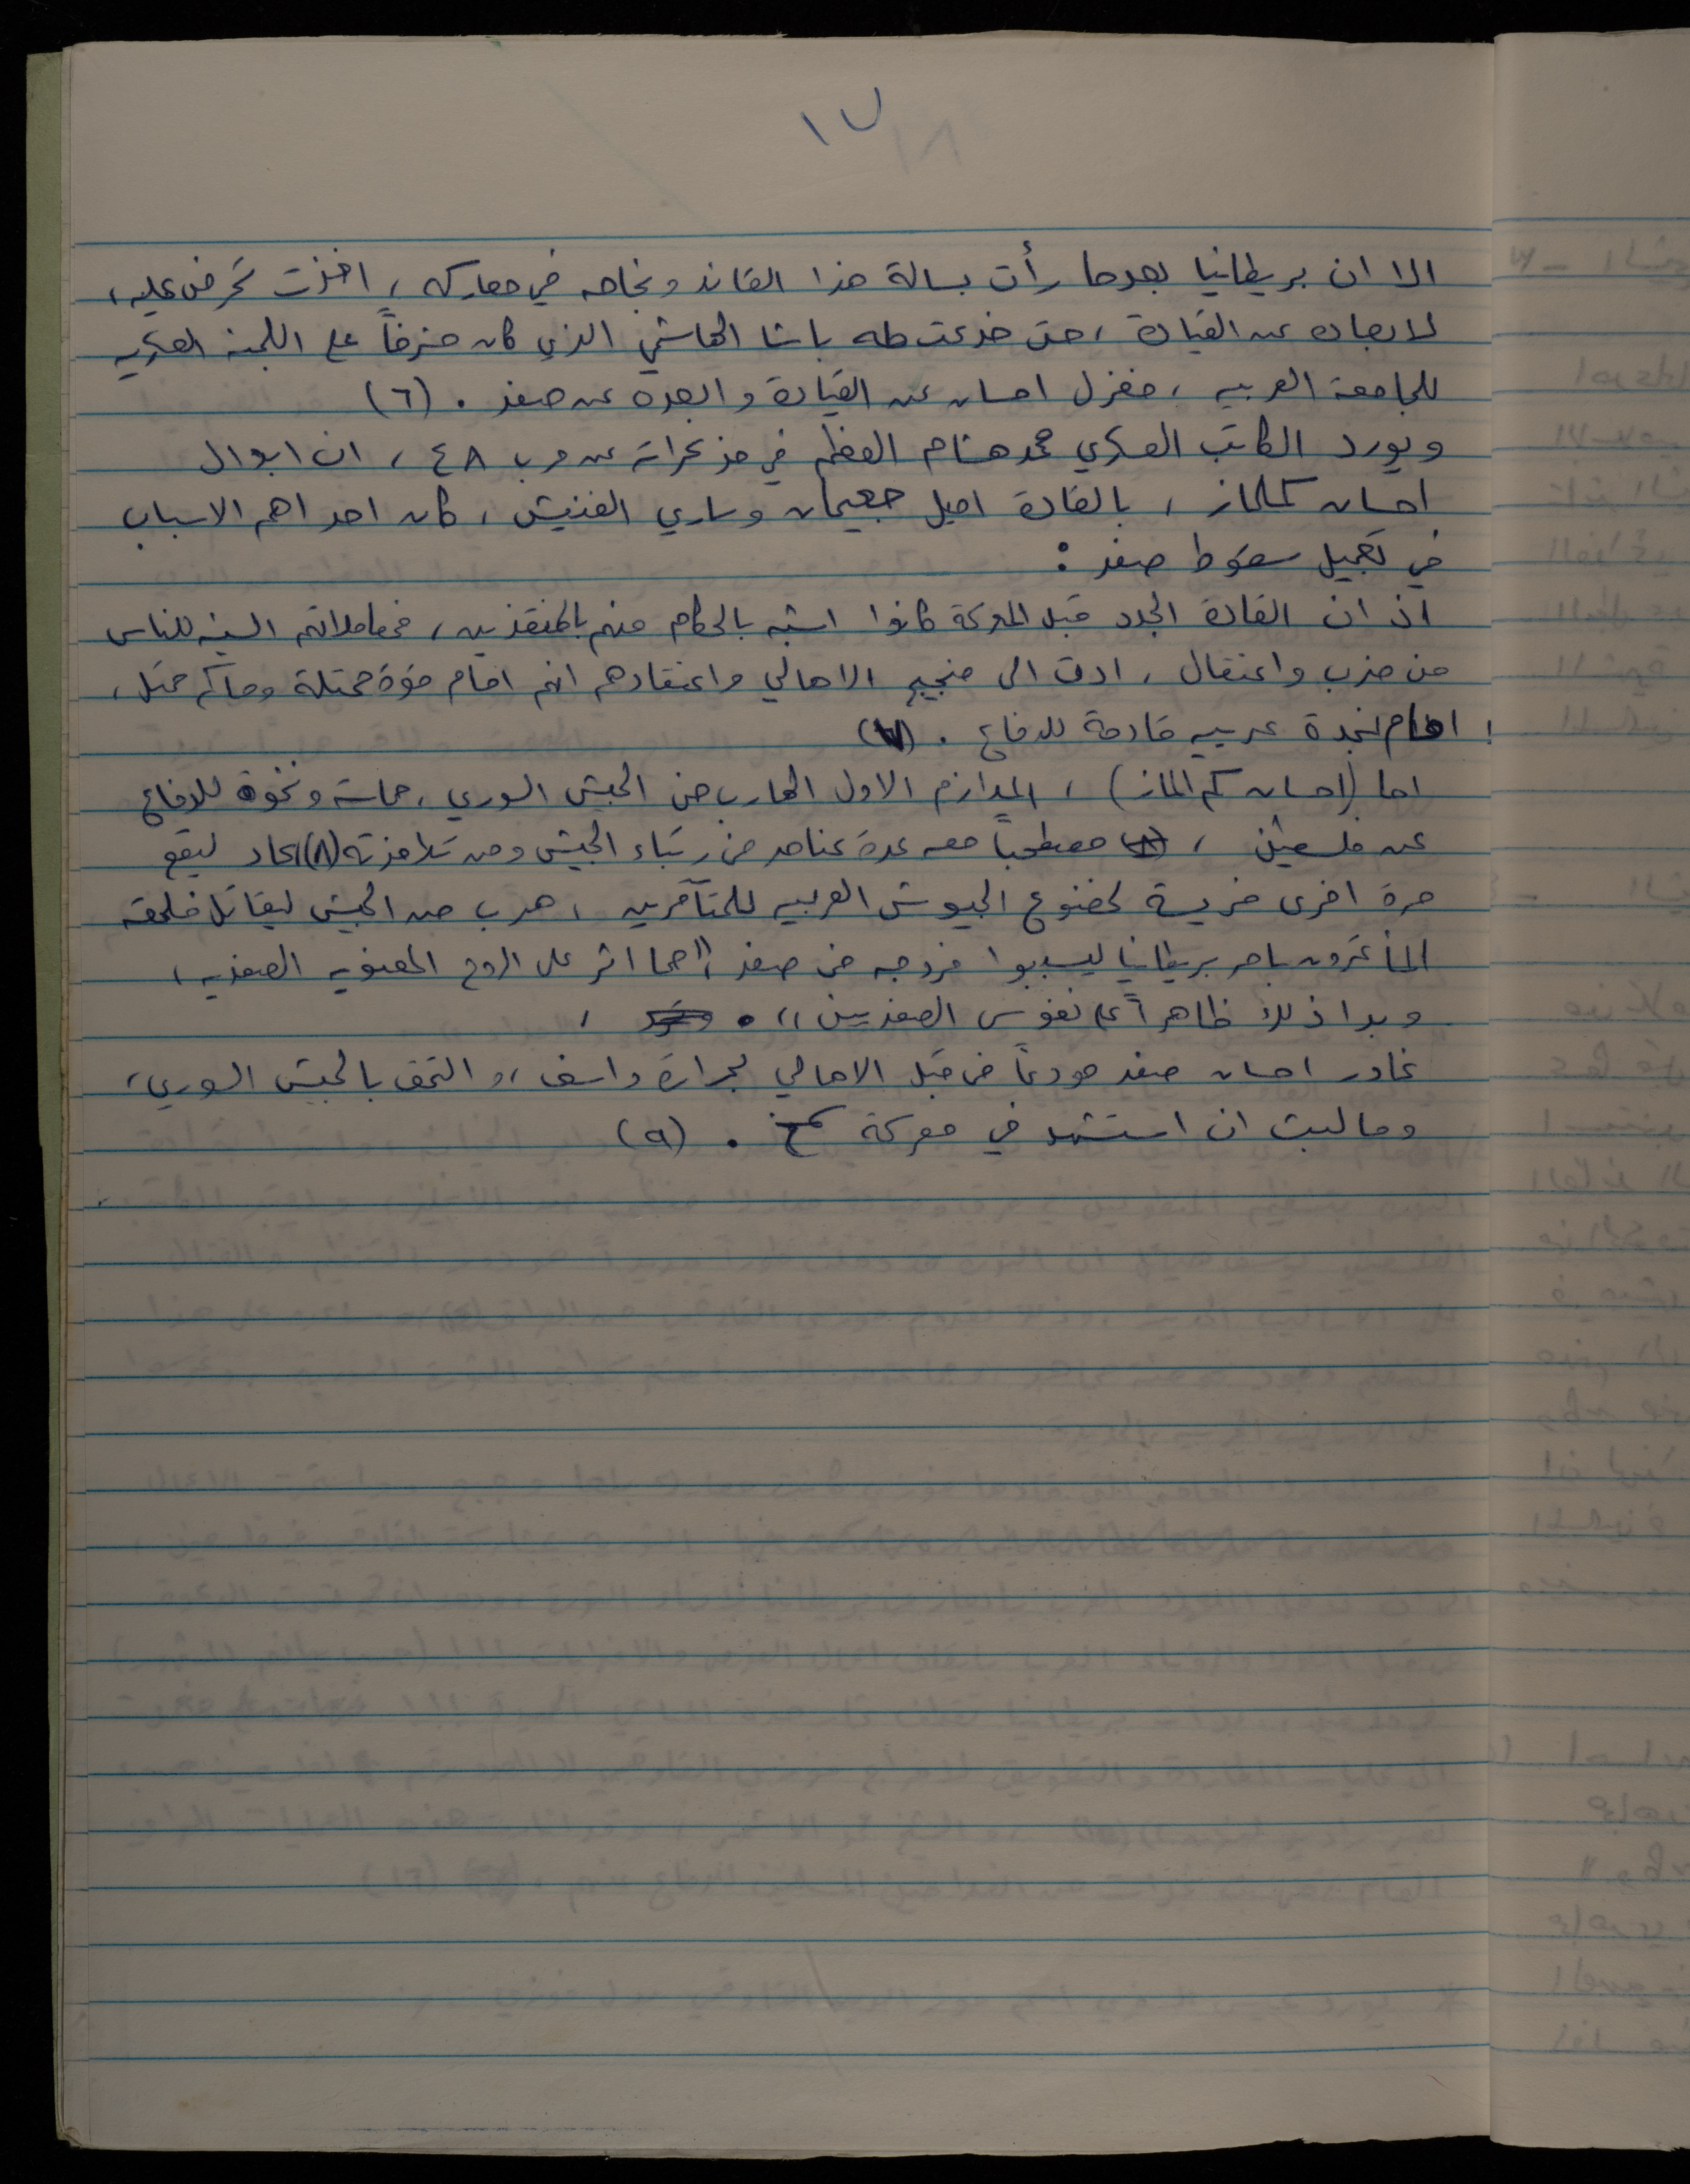 ١٧
الا ان بريطانيا بعدما رأت بسالة هذا القائد ونجاحه في معاركه، اخذت تحرض عليه،
لابعاده عن القيادة، حتى خدعت طه باشا الهاشمي الذي كان مشرفاً على اللجنة العسكريه
للجامعة العربيه، فعزل احسان عن القيادة وابعده عن صفد. (٦)
ويورد الكاتب العسكري محمد هشام العظم في مذكراته عن حرب ٤٨، ان ابدال
احسان كملماز، بالقادة اميل جميعان وساري الفنيش، كان احد اهم الاسباب
في تعجيل سقوط صفد:
اذ ان القادة الجدد قبل المعركة كانوا اشبه بالحكام منهم بالمنقذين، فمعاملاتهم السيئه للناس
من ضرب واعتقال، ادت الى ضجيج الاهالي واعتقادهم انهم امام قوة محتلة وحاكم محتل،
امام نجدة عربيه قادمة للدفاع. (٧)
اما (احسان كم الماز)، الملازم الاول الهارب من الجيش السوري، حماسة ونخوة للدفاع
عن فلسطين، مصطحباً معه عدة عناصر من رتباء الجيش ومن تلامذته (٨) عاد ليقع
مرة اخرى فريسة لخضوع الجيوش العربيه للمتآمرين، هرب من الجيش ليقاتل فلحقه
المأتمرون بامر بريطانيا ليسببوا خروجه من صفد، "مما اثر على الروح المعنويه الصفديه،
وبدا ذلك ظاهراً على نفوس الصفديين".
غادر احسان صفد مودعاً من قبل الاهالي بحرارة واسف، والتحق بالجيش السوري،
وما لبث ان استشهد في معركة سمخ. (٩)